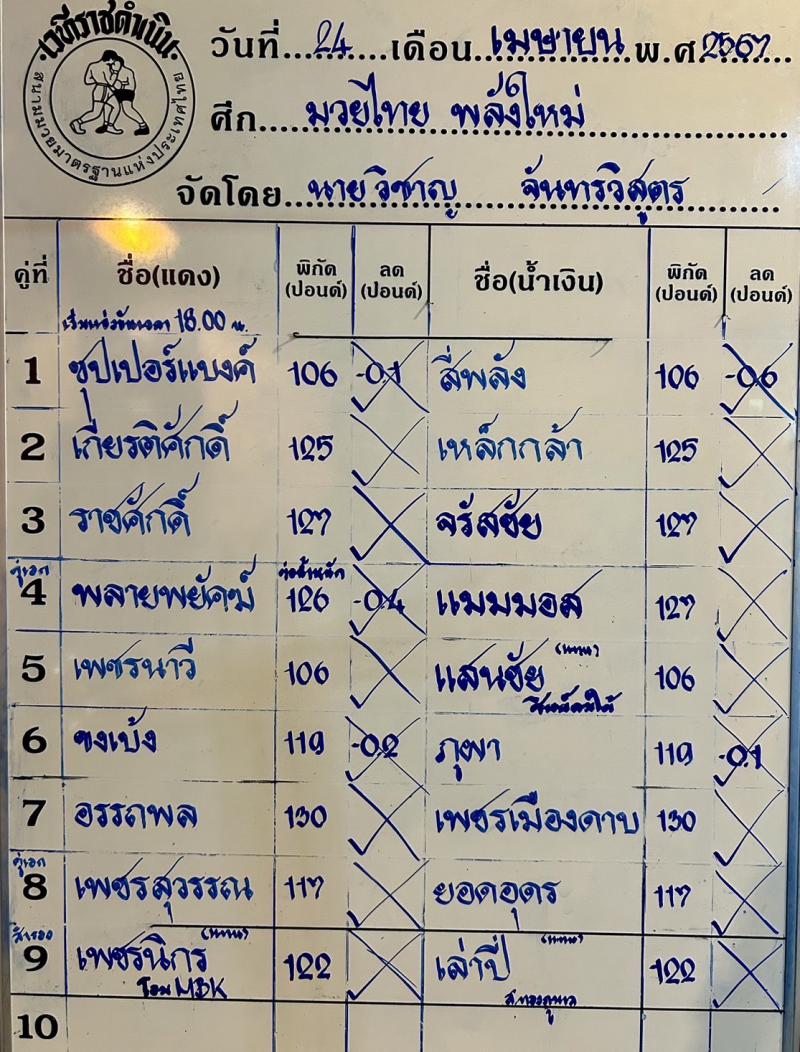 เวทีราชดำเนิน
สนามมวยมาตรฐานแห่งประเทศไทย
วันที่ 24 เดือน เมษายน พ.ศ 2567
ศึก มวยไทย พลังใหม่
จัดโดย นาย วิชาญ จันทรวิสูตร
คู่ที่ ชื่อ(แดง) พิกัด (ปอนด์) ลด (ปอนด์) ชื่อ(น้ำเงิน) พิกัด (ปอนด์) ลด (ปอนด์)
เริ่มแข่งขันเวลา 18.00 น.
1 ซุปเปอร์แบงค์ 106 -0.1 สี่พลัง 106 -0.6
2 เกียรติศักดิ์ 125 เหล็กกล้า 125
3 ราชศักดิ์ 127 จรัสชัย 127
คู่เอก ต่อน้ำหนัก
4 พลายพยัคฆ์ 126 -0.4 แมมมอส 127
5 เพชรนาวี 106 แสนชัย (แทน) 106
6 ซงเบ้ง 119 -0.2 ภูผา 119 -0.1
7 อรรถพล 130 เพชรเมืองดาบ 130
คู่เอก
8 เพชรสุวรรณ 117 ยอดอุดร 117
สำรอง (แทน) (แทน)
9 เพชรนิกร 122 เล่าปี่ 122
โอม MBK
10